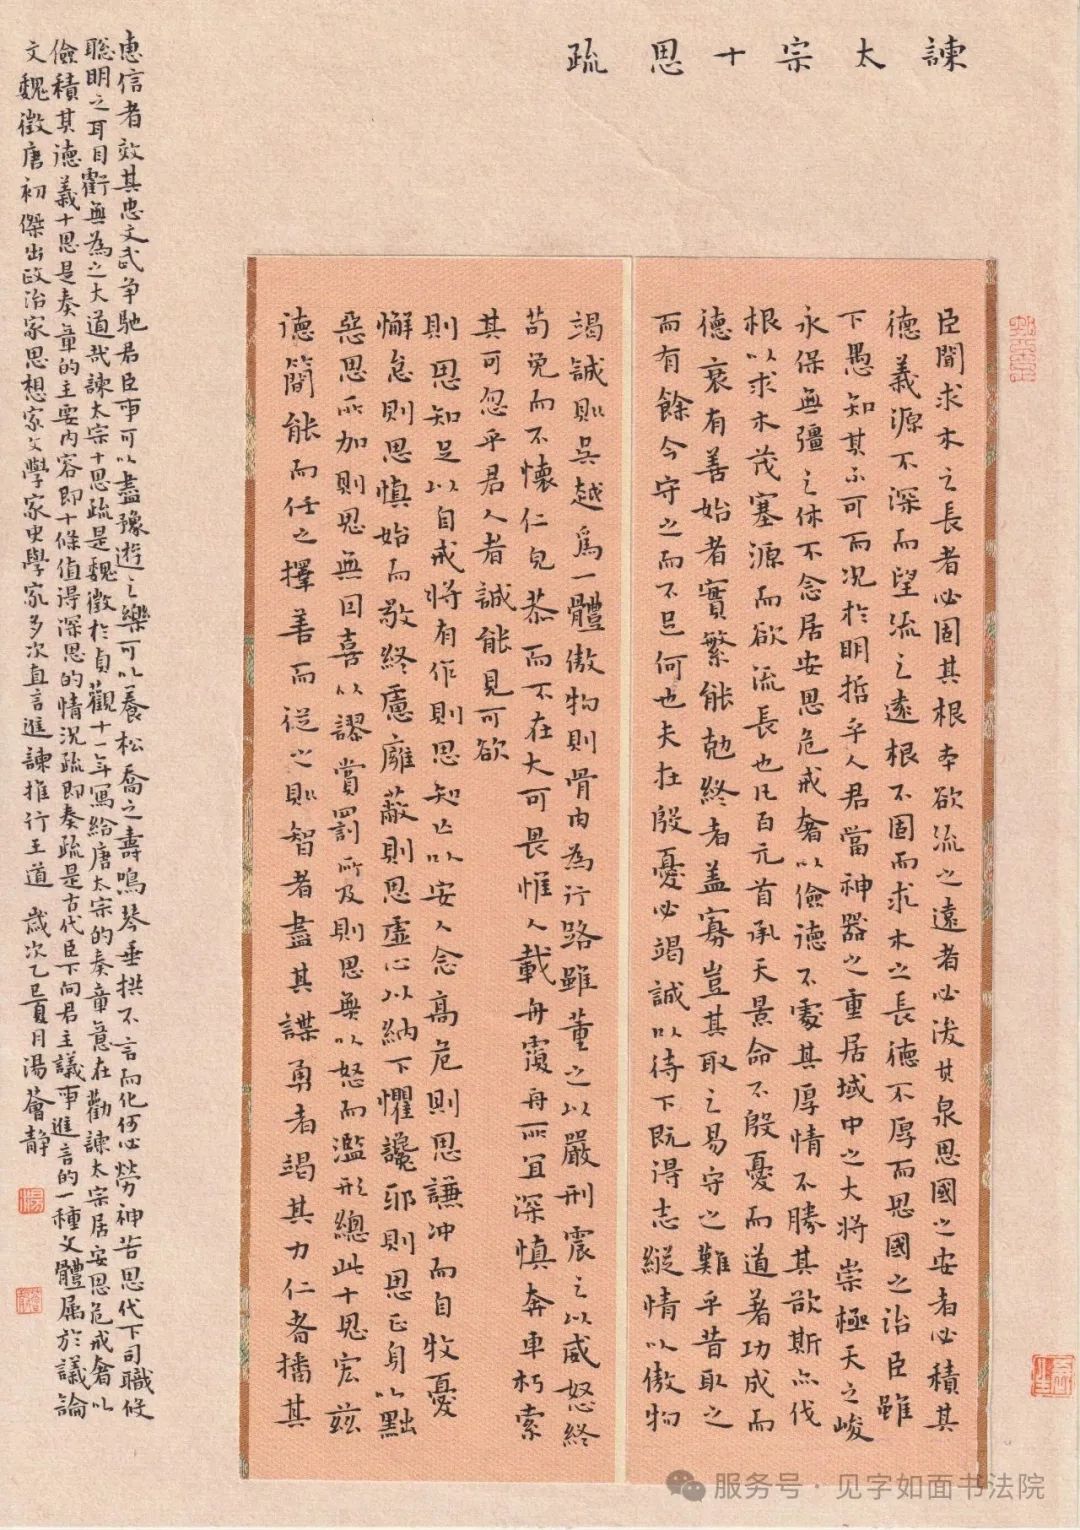 諫太宗十思疏
臣聞求木之長者必固其根本欲流之遠者必浚其泉思國之安者必積其
德義源不深而望流之遠根不固而求木之長德不厚而思國之治臣雖
下愚知其不可而況於明哲乎人君當神器之重居域中之大將崇極天之峻
永保無疆之休不念居安思危戒奢以儉德不處其厚情不勝其欲斯亦伐
根以求木茂塞源而欲流長也凡百元首承天景命不殷憂而道著功成而
德衰有善始者實繁能剋終者蓋寡豈其取之易守之難乎昔取之
而有餘今守之而不足何也夫在殷憂必竭誠以待下既得志縱情以傲物
竭誠則吳越爲一體傲物則骨肉為行路雖董之以嚴刑震之以威怒終
苟免而不懷仁皃恭而不在大可畏惟人載舟覆舟所宜深慎奔車朽索
其可忽乎君人者誠能見可欲
則思知足以自戒將有作則思知止以安人念高危則思謙冲而自牧憂
懈怠則思慎始而敬終慮廱蔽則思虛心以納下懼讒邪則思正身以黜
惡思所加則思無因喜以謬賞罰所及則思無以怒而濫形總此十思宏茲
德簡能而任之擇善而從之則智者盡其謀勇者竭其力仁者播其
惠信者效其忠文武争馳君臣事可以盡豫遊之樂可以養松喬之壽鳴琴垂拱不言而化何必勞神苦思代下司職役
聪明之耳目虧無為之大道哉諫太宗十思疏是魏徵於貞觀十一年寫給唐太宗的奏章意在勸諫太宗居安思危戒奢以
儉積其德義十思是奏章的主要内容即十條值得深思的情況疏即奏疏是古代臣下向君主議事進言的一種文體属於議論
文魏徵唐初傑出政治家思想家文學家史學家多次直言進諫推行王道 歲次乙巳夏月湯薈静
服务号·见字如面书法院